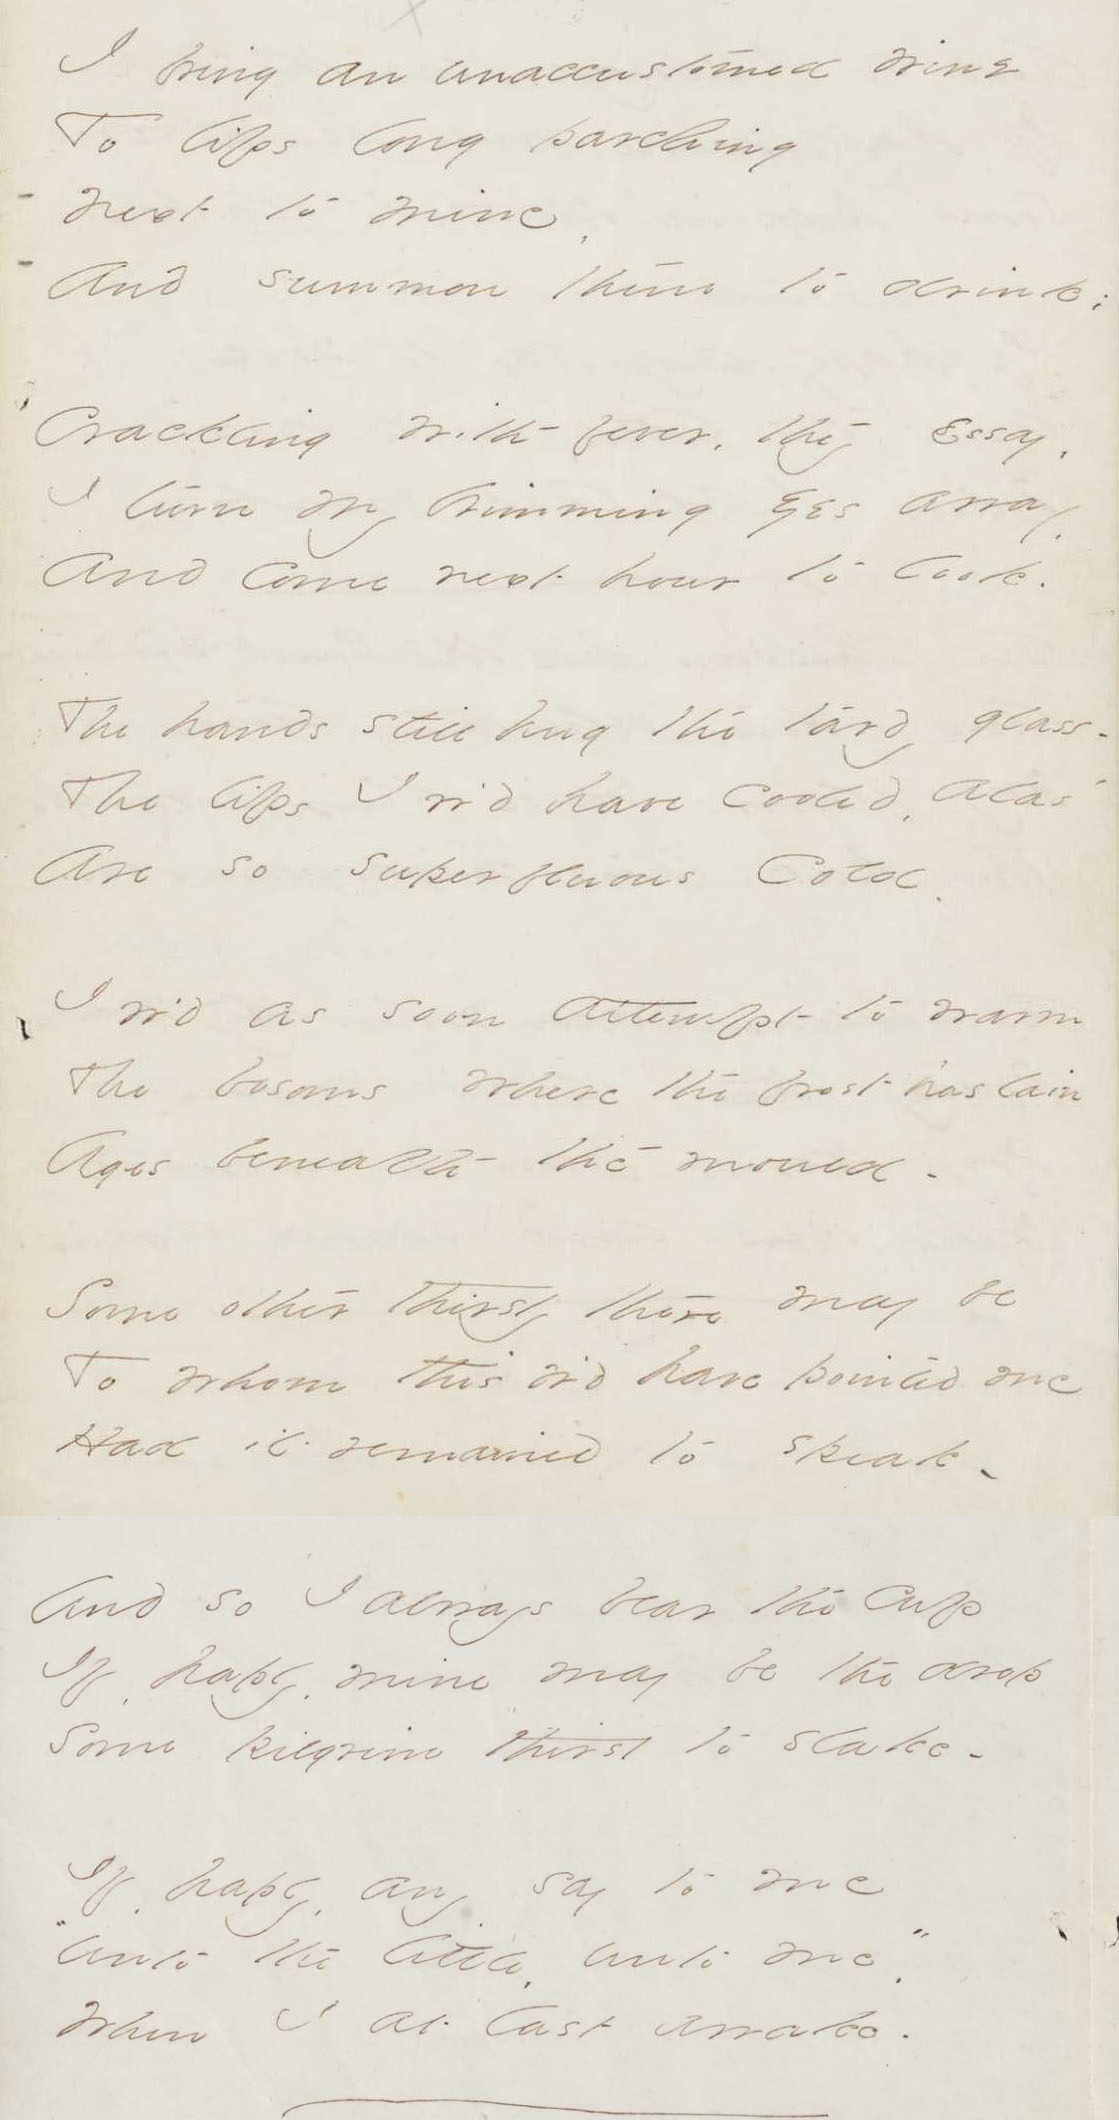 I bring an unaccustomed wine
To lips long parching
next to mine,
And summon them to drink;
Crackling with fever, they Essay,
I turn my brimming Eyes away,
And come next hour to look.
The hands still hug the tardy glass -
The lips I w'd have cooled, alas -
Are so superfluous Cold.
I w'd as soon attempt to warm
The bosoms where the frost has lain
Ages beneath the mould -
Some other thirsty there may be
To whom this w'd have pointed me
Had it remained to speak -
And so I always bear the Cup
If, haply, mine may be the drop
Some pilgrim thirst to slake -
If, haply, any say to me
"Unto the little, unto me,"
When I at last awake.